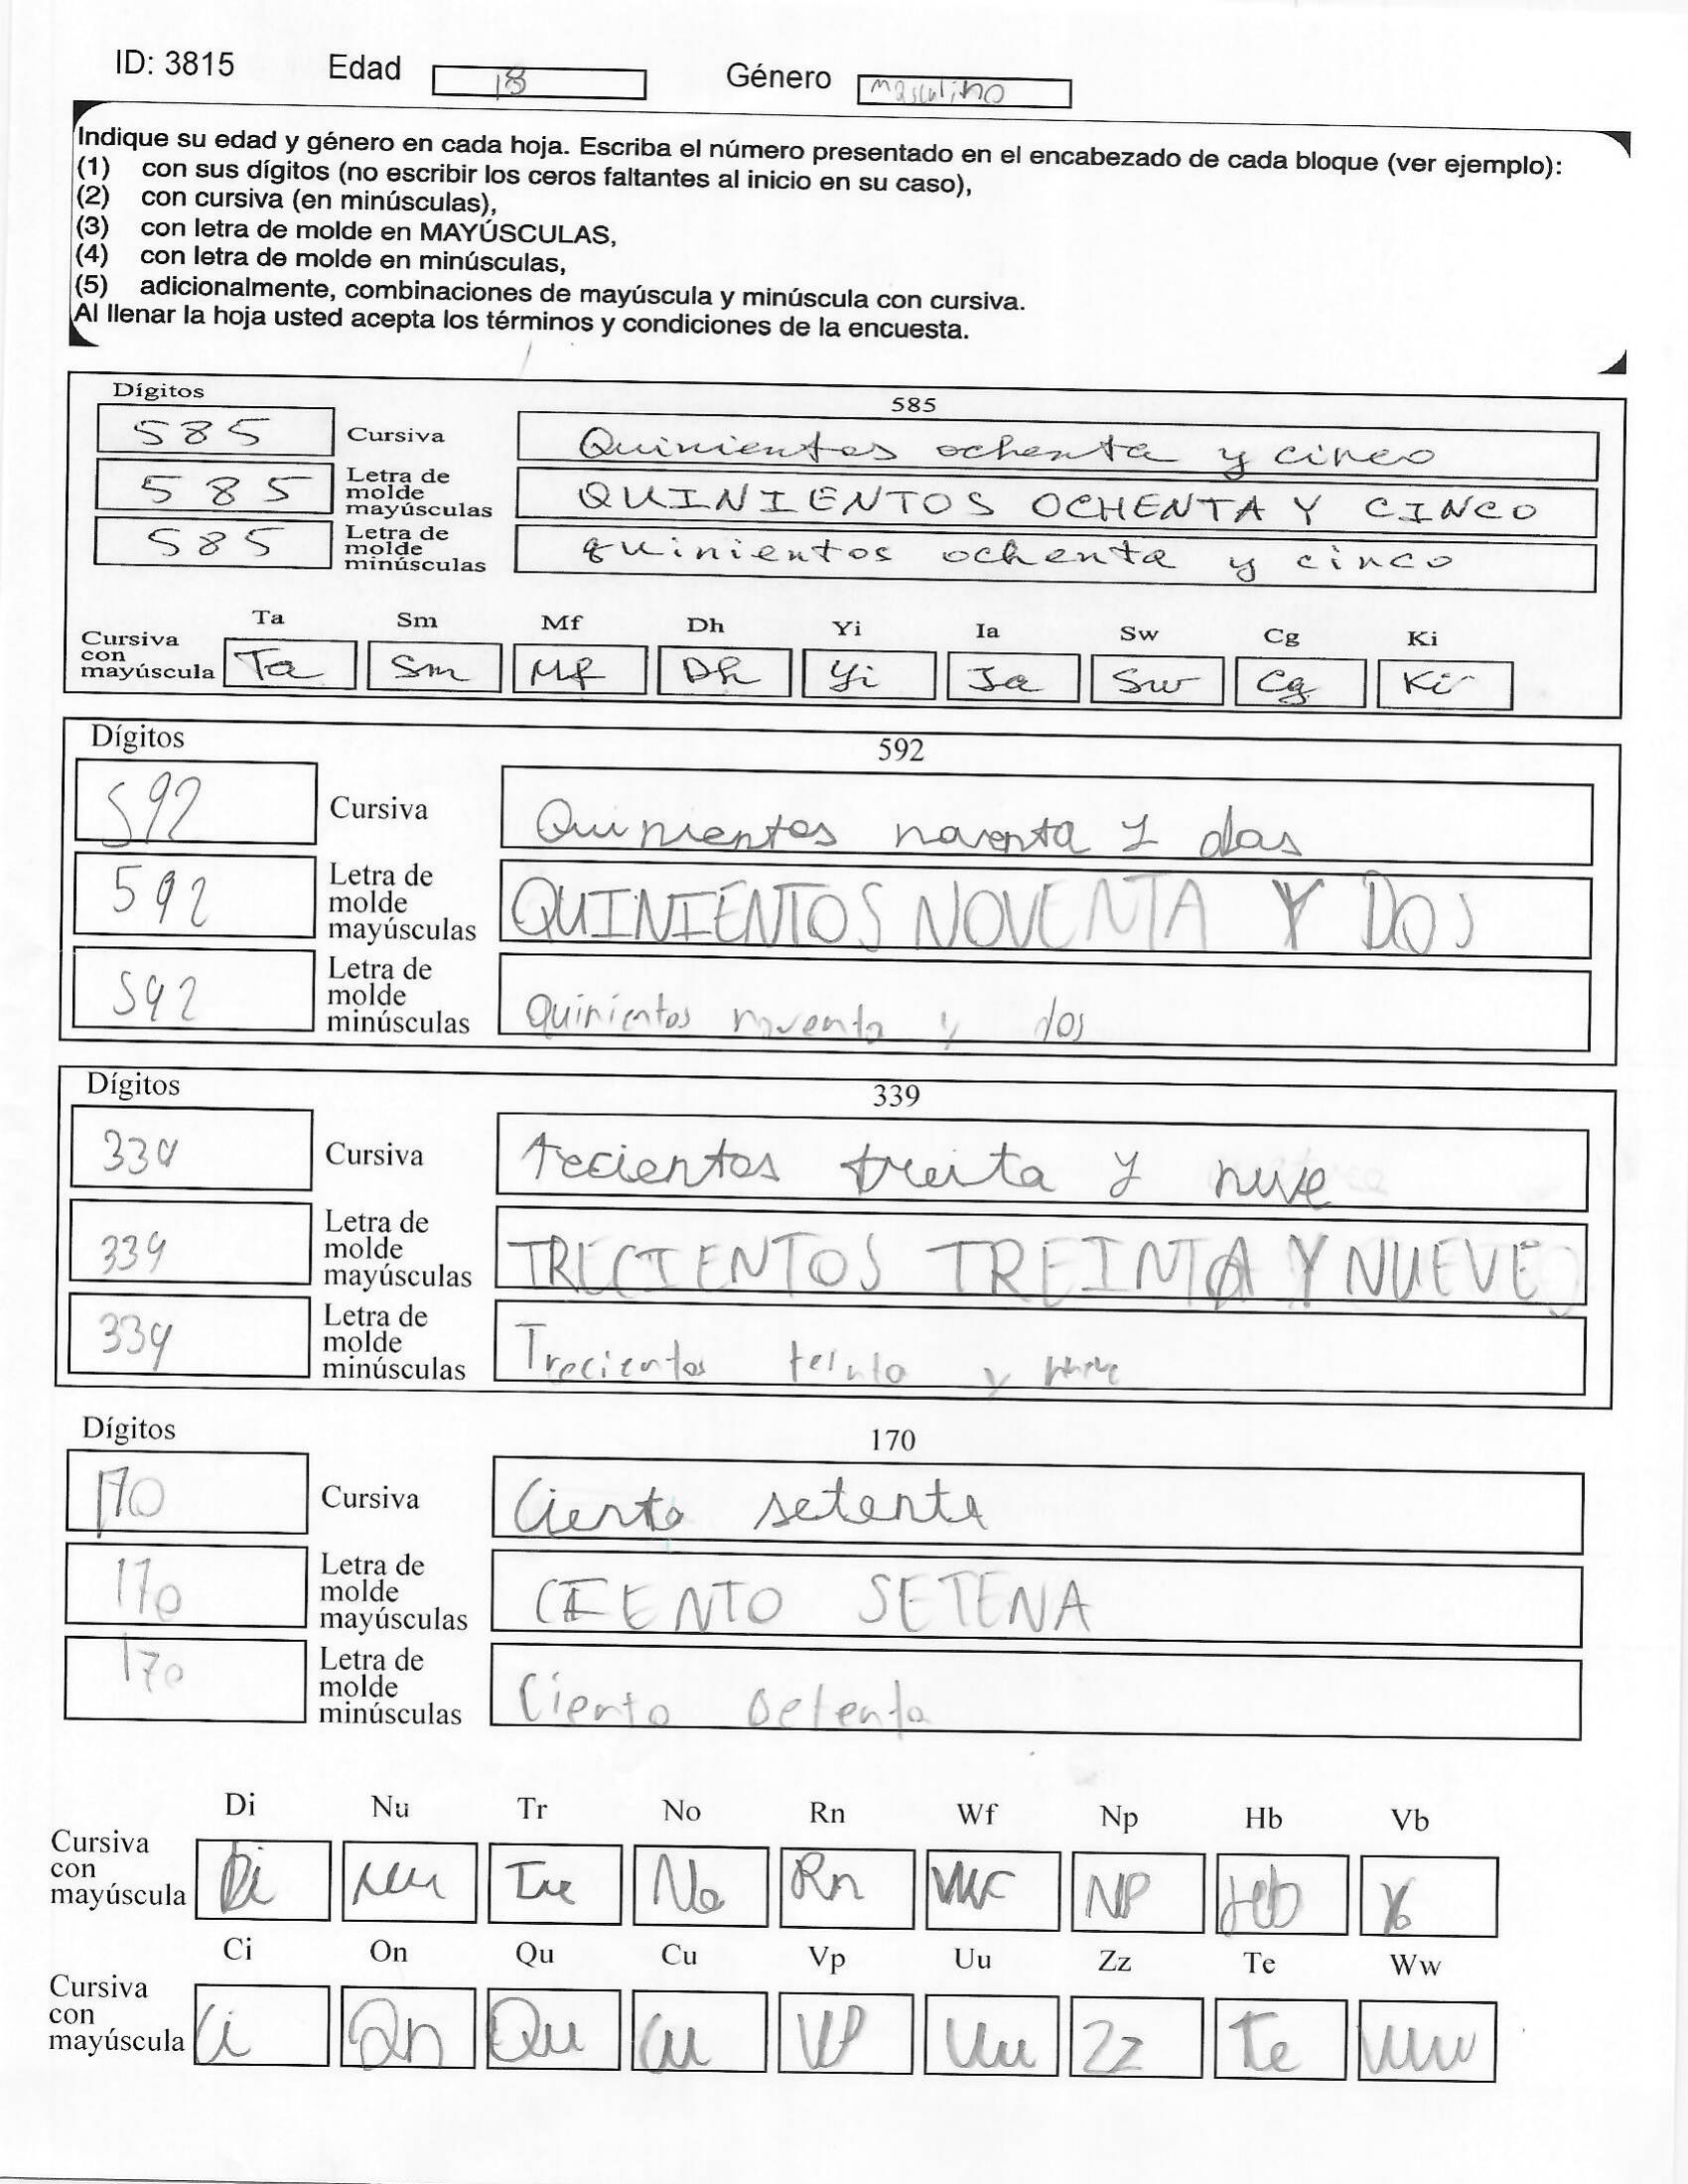 ID: 3815 Edad 18 Género masculino
Indique su edad y género en cada hoja. Escriba el número presentado en el encabezado de cada bloque (ver ejemplo):
(1) con sus dígitos (no escribir los ceros faltantes al inicio en su caso),
(2) con cursiva (en minúsculas),
(3) con letra de molde en MAYÚSCULAS,
(4) con letra de molde en minúsculas,
(5) adicionalmente, combinaciones de mayúscula y minúscula con cursiva.
Al llenar la hoja usted acepta los términos y condiciones de la encuesta.
Dígitos 585
585 Cursiva Quinientos ochenta y cinco
585 Letra de molde mayúsculas QUINIENTOS OCHENTA Y CINCO
585 Letra de molde minúsculas quinientos ochenta y cinco
Ta Sm Mf Dh Yi Ia Sw Cg Ki
Cursiva con mayúscula Ta Sm Mf Dh Yi Ia Sw Cg Ki
Dígitos 592
592 Cursiva Quinientos noventa y dos
592 Letra de molde mayúsculas QUINIENTOS NOVENTA Y DOS
592 Letra de molde minúsculas Quinientos noventa y dos
Dígitos 339
339 Cursiva trecientos treita y nuve
339 Letra de molde mayúsculas TRECIENTOS TREINTA Y NUEVE
339 Letra de molde minúsculas Trecientos teinta y
Dígitos 170
170 Cursiva Ciento setenta
170 Letra de molde mayúsculas CIENTO SETENA
170 Letra de molde minúsculas Ciento setenta
Di Nu Tr No Rn Wf Np Hb Vb
Cursiva con mayúscula Di Nu Tr No Rn Wf NP Hb Vb
Ci On Qu Cu Vp Uu Zz Te Ww
Cursiva con mayúscula Ci On Qu Cu VP Uu Zz Te Ww